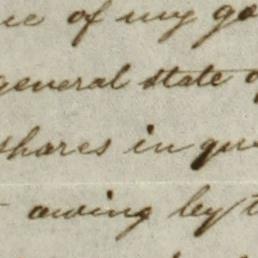 of my
general state
shares in
owing by